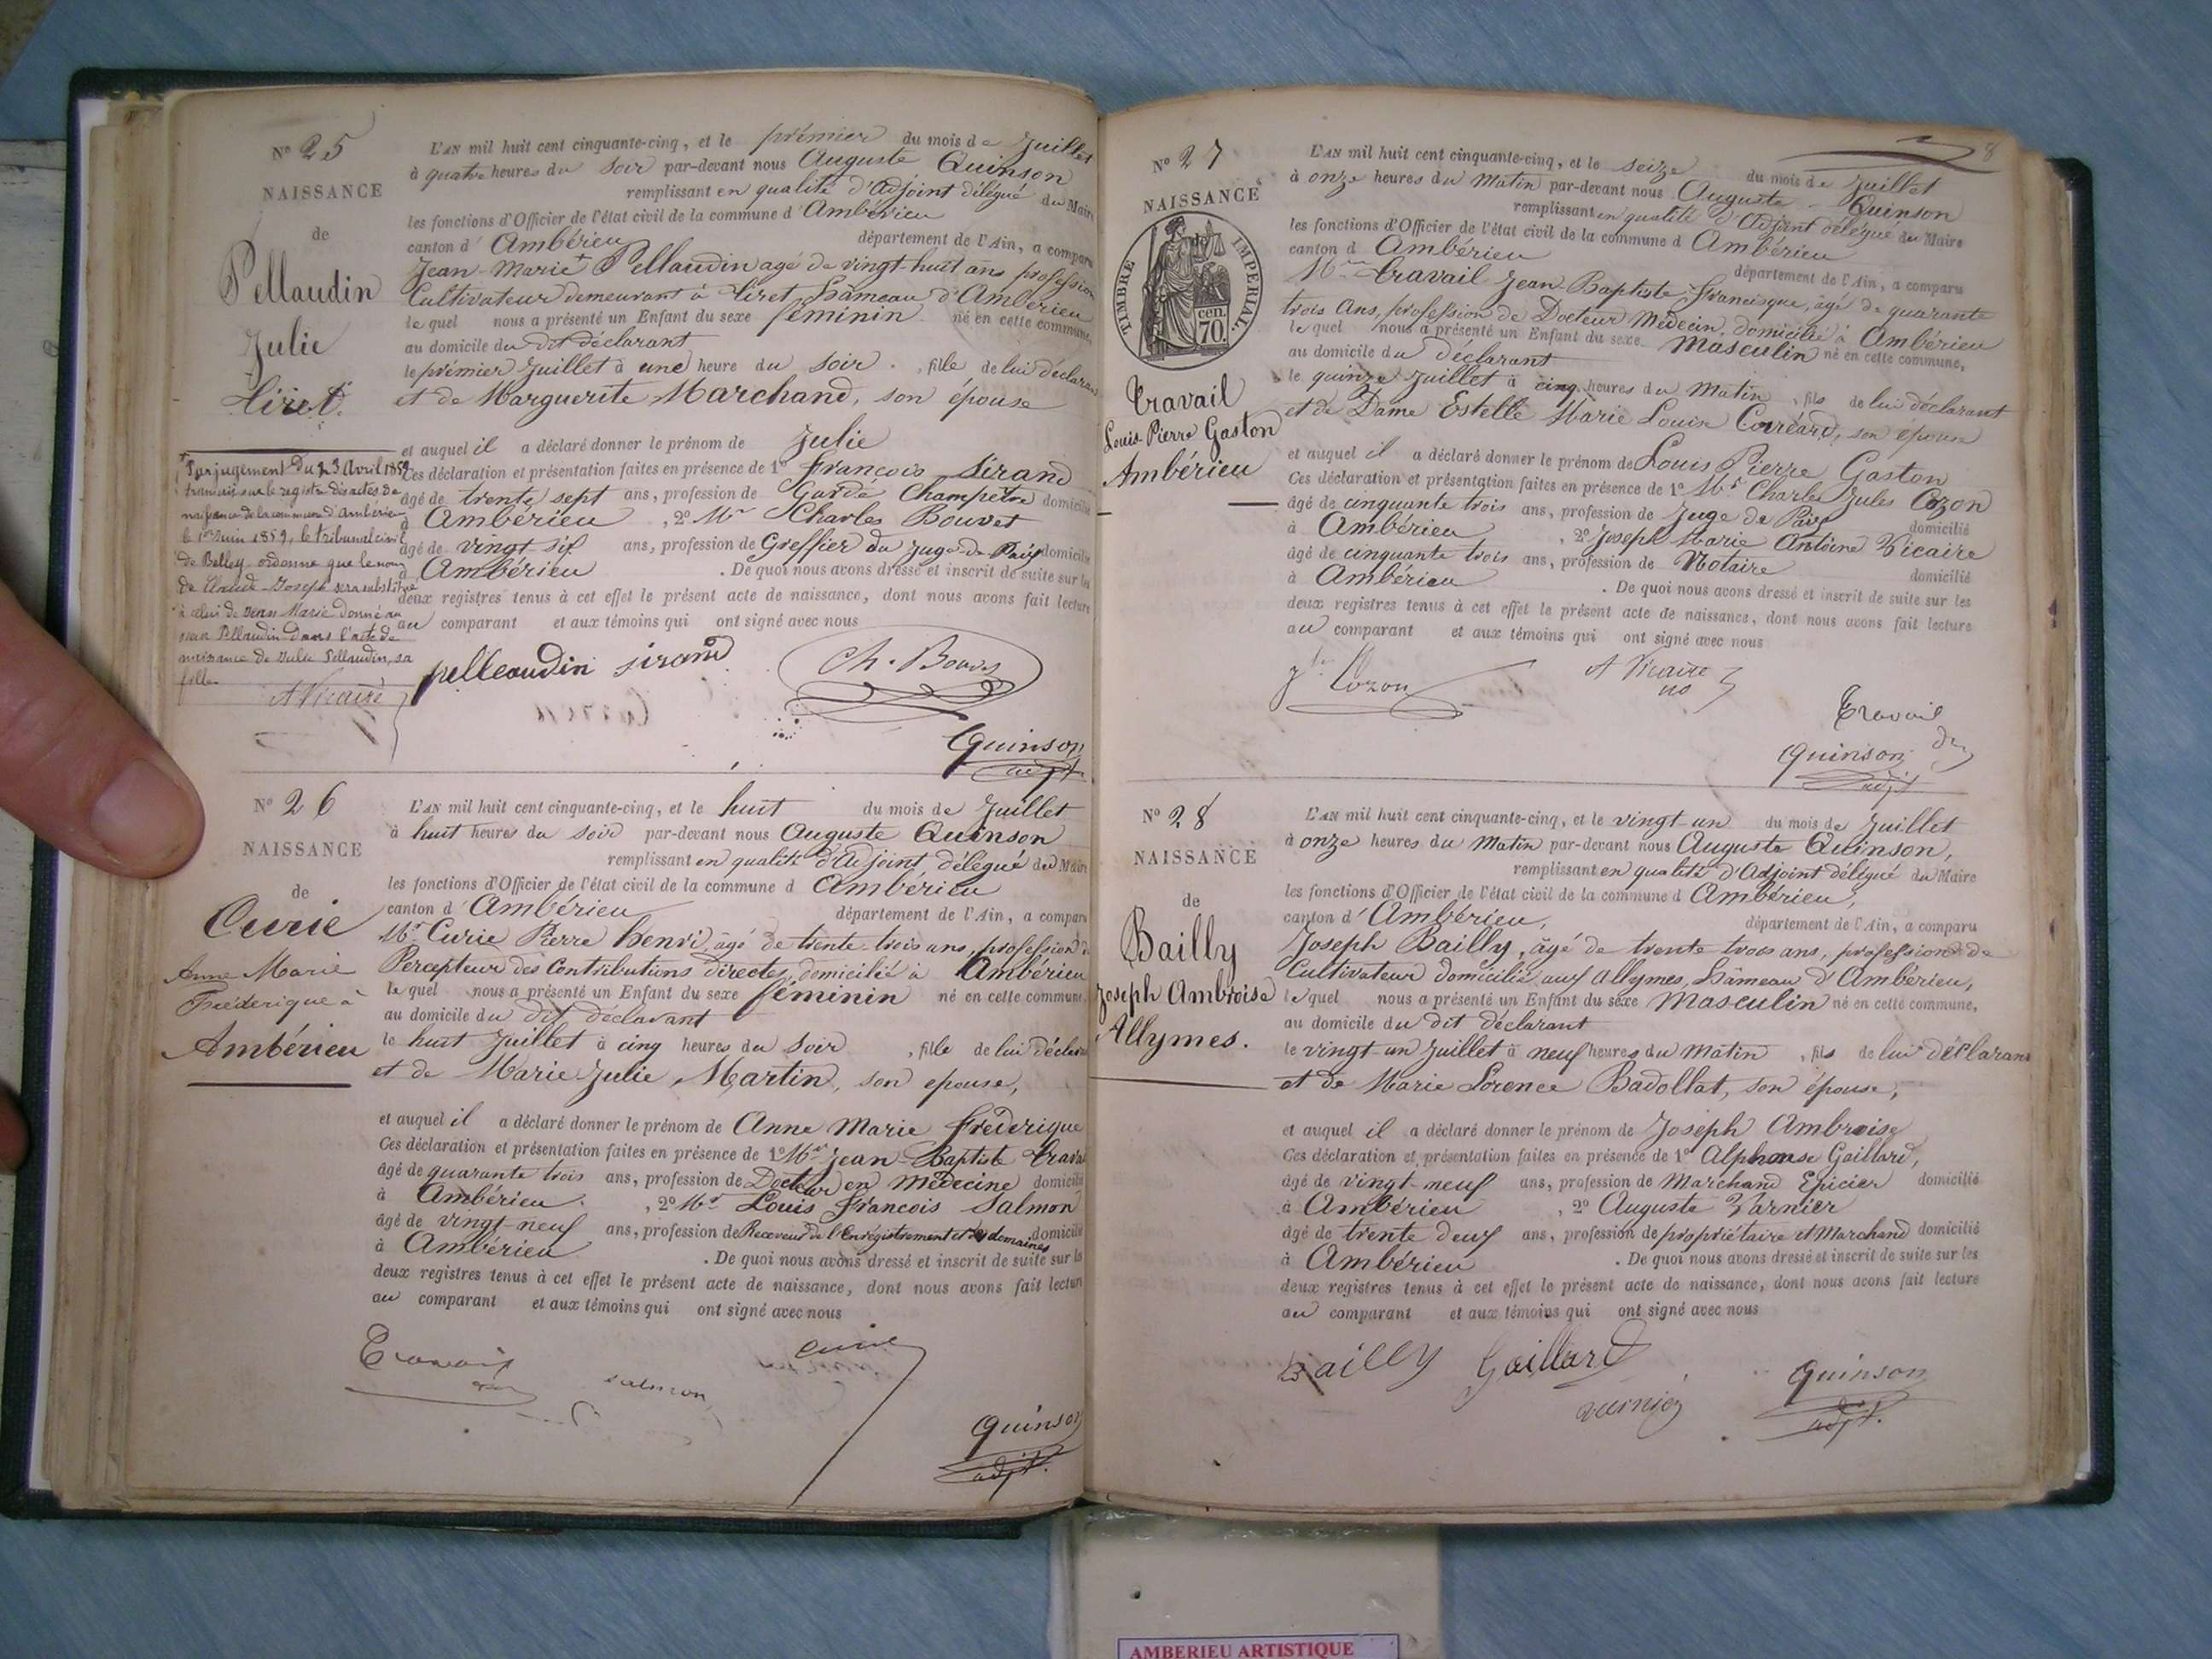 Nº 25
NAISSANCE
de
Pellaudin
Julie
Tiret.
L'AN mil huit cent cinquante-cinq, et le premier du mois de Juillet
à quatre heures du Soir par-devant nous Auguste Quinson
remplissant en qualité d'Adjoint délégué du Maire
les fonctions d'Officier de l'état civil de la commune d'Ambérieu
canton d' Ambérieu département de l'Ain, a comparu
Jean-Marie + Pellaudin agé de vingt-huit ans profession
Cultivateur demeurant à Tiret hameau d'Ambérieu
le quel nous a présenté un Enfant du sexe féminin né en cette commune,
au domicile du dit déclarant
le premier Juillet à une heure du Soir , fille de lui déclarant
et de Marguerite Marchand, son épouse
et auquel il a déclaré donner le prénom de Julie
Ces déclaration et présentation faites en présence de 1º François Sirand
âgé de trente sept ans, profession de Garde Champêtre domicilié
à Ambérieu , 2º Mr Charles Bouvet
âgé de vingt six ans, profession de Greffier du Juge de Paix domicilié
à Ambérieu . De quoi nous avons dressé et inscrit de suite sur les
deux registres tenus à cet effet le présent acte de naissance, dont nous avons fait lecture
au comparant et aux témoins qui ont signé avec nous
+ Par jugement du 23 Avril 1859
transcrit sur le registre des actes de
naissance de la commune d'Ambérieu
le 1er Juin 1859, le tribunal civil
de Belley ordonne que le nom
de Claude-Joseph sera substitué
à celui de Jean Marie donné au
sieur Pellaudin dans l'acte de
naissance de Julie Pellaudin, sa
fille.
A Vicaire
pelleaudin sirand Ch. Bouvet
Quinson
adjt
Nº 26
NAISSANCE
de
Curie
Anne Marie
Fréderique à
Ambérieu
L'AN mil huit cent cinquante-cinq, et le huit du mois de Juillet
à huit heures du Soir par-devant nous Auguste Quinson
remplissant en qualité d'Adjoint délégué du Maire
les fonctions d'Officier de l'état civil de la commune d Ambérieu
canton d' Ambérieu département de l'Ain, a comparu
Mr Curie Pierre henri, âgé de trente-trois ans, profession de
Percepteur des Contributions directes, domicilié à Ambérieu
le quel nous a présenté un Enfant du sexe féminin né en cette commune,
au domicile du dit déclarant
le huit Juillet à cinq heures du Soir , fille de lui déclarant
et de Marie Julie Martin, son epouse,
et auquel il a déclaré donner le prénom de Anne Marie Fréderique
Ces déclaration et présentation faites en présence de 1º Mr Jean-Baptiste Travail
âgé de quarante trois ans, profession de Docteur en Médecine domicilié
à Ambérieu. , 2º Mr Louis François Salmon
âgé de vingt-neuf ans, profession de Receveur de l'Enrégistrement et des domaines domicilié
à Ambérieu . De quoi nous avons dressé et inscrit de suite sur les
deux registres tenus à cet effet le présent acte de naissance, dont nous avons fait lecture
au comparant et aux témoins qui ont signé avec nous
Travail curie
salmon
Quinson
adjt.
8
Nº 27
NAISSANCE
TIMBRE IMPERIAL.
cen.
70.
Travail
Louis-Pierre Gaston
Ambérieu
L'AN mil huit cent cinquante-cinq, et le seize du mois de Juillet
à onze heures du Matin par-devant nous Auguste Quinson
remplissant en qualité d'Adjoint délégué du Maire
les fonctions d'Officier de l'état civil de la commune d Ambérieu
canton d Ambérieu département de l'Ain, a comparu
Mr Travail Jean Baptiste Francisque, âgé de quarante
trois Ans, profession de Docteur Médecin, domicilié à Ambérieu
le quel nous a présenté un Enfant du sexe Masculin né en cette commune,
au domicile du déclarant
le quinze Juillet à cinq heures du Matin , fils de lui déclarant
et de Dame Estelle Marie Louise Corréard, son épouse
et auquel il a déclaré donner le prénom de Louis Pierre Gaston
Ces déclaration et présentation faites en présence de 1º Mr Charles Jules Cozon
âgé de cinquante trois ans, profession de Juge de Paix domicilié
à Ambérieu , 2º Joseph Marie Antoine Vicaire
âgé de cinquante trois ans, profession de Notaire domicilié
à Ambérieu . De quoi nous avons dressé et inscrit de suite sur les
deux registres tenus à cet effet le présent acte de naissance, dont nous avons fait lecture
au comparant et aux témoins qui ont signé avec nous
Cozon A Vicaire
Travail
Quinson
adjt
Nº 28
NAISSANCE
de
Bailly
Joseph Ambroise
Allymes.
L'AN mil huit cent cinquante-cinq, et le vingt-un du mois de Juillet
à onze heures du Matin par-devant nous Auguste Quinson,
remplissant en qualité d'Adjoint délégué du Maire
les fonctions d'Officier de l'état civil de la commune d Ambérieu,
canton d' Ambérieu, département de l'Ain, a comparu
Joseph Bailly, âgé de trente trois ans, profession de
Cultivateur domicilié aux Allymes, hâmeau d'Ambérieu,
le quel nous a présenté un Enfant du sexe Masculin né en cette commune,
au domicile du dit déclarant
le vingt-un Juillet à neuf heures du Matin , fils de lui déclarant
et de Marie Lorence Badollat, son épouse,
et auquel il a déclaré donner le prénom de Joseph Ambroise
Ces déclaration et présentation faites en présence de 1º Alphonse Gaillard,
âgé de vingt-neuf ans, profession de Marchand Epicier domicilié
à Ambérieu , 2º Auguste Varnier
âgé de trente deux ans, profession de propriétaire et Marchand domicilié
à Ambérieu . De quoi nous avons dressé et inscrit de suite sur les
deux registres tenus à cet effet le présent acte de naissance, dont nous avons fait lecture
au comparant et aux témoins qui ont signé avec nous
Bailly Gaillard Quinson
varnier adjt.
AMBERIEU ARTISTIQUE